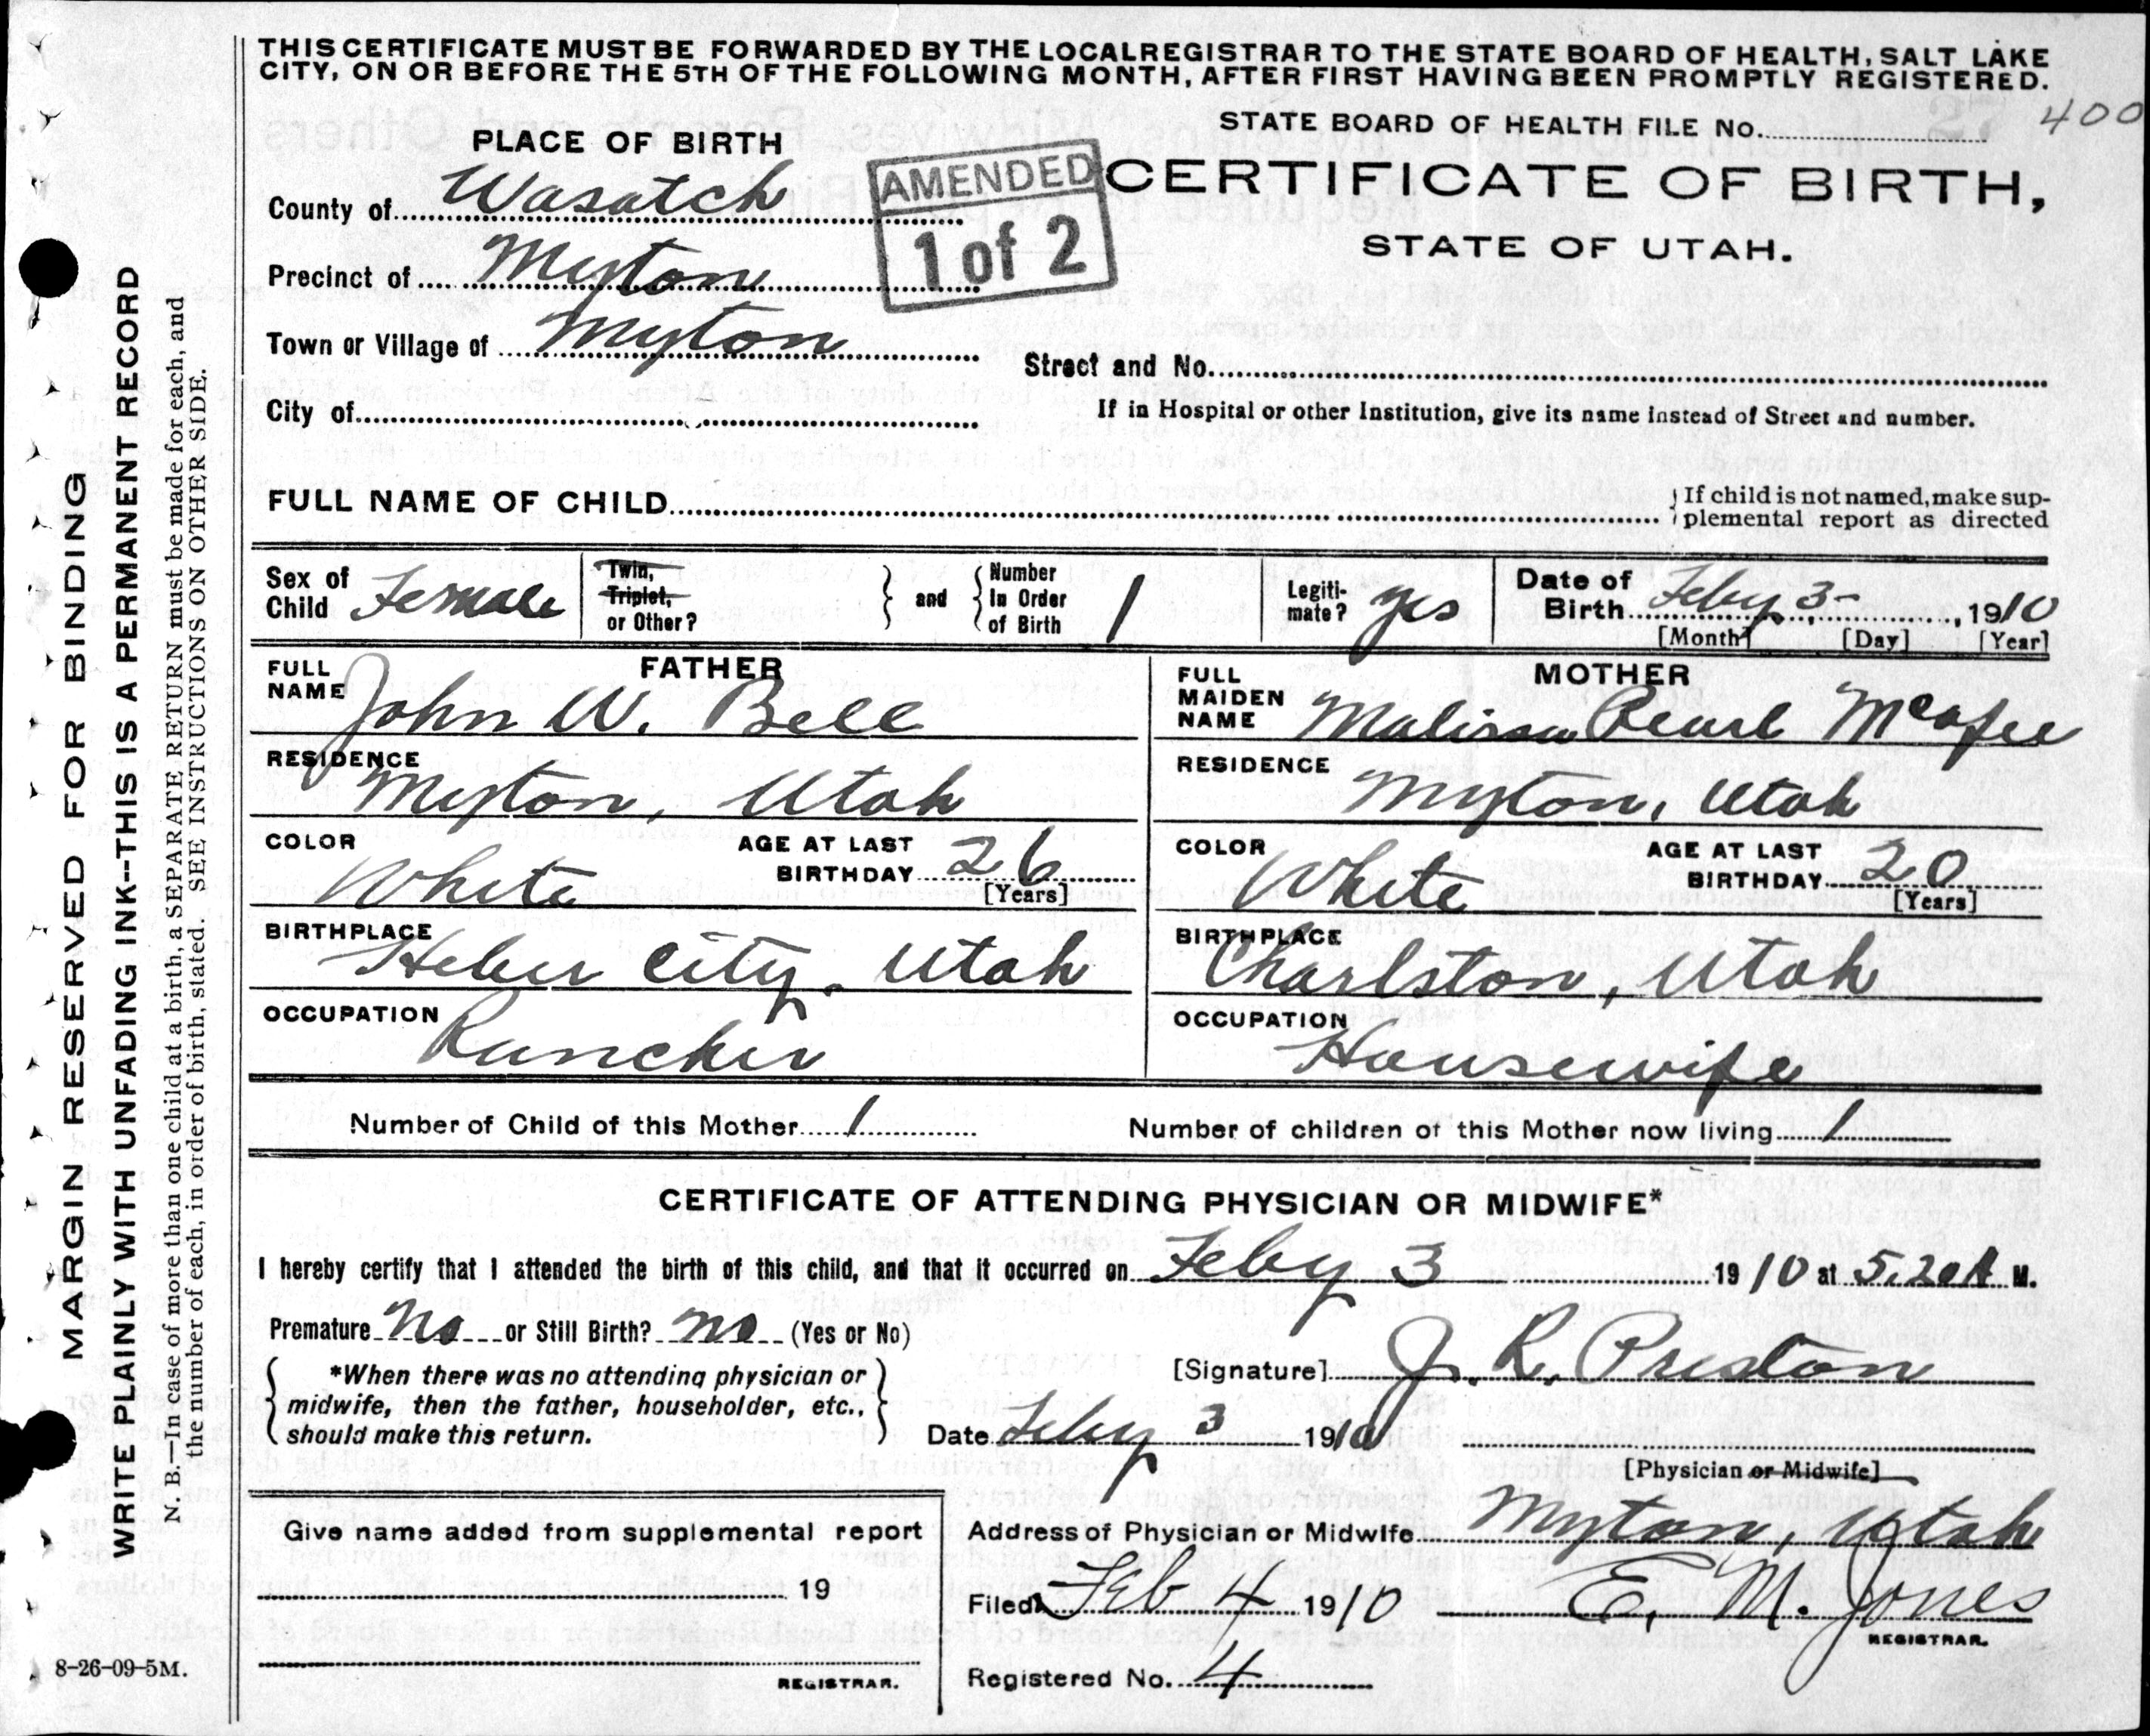 THIS CERTIFICATE MUST BE FORWARDED BY THE LOCAL REGISTRAR TO THE STATE BOARD OF HEALTH, SALT LAKE
CITY, ON OR BEFORE THE 5TH OF THE FOLLOWING MONTH, AFTER FIRST HAVING BEEN PROMPTLY REGISTERED.
STATE BOARD OF HEALTH FILE No. 400
PLACE OF BIRTH
AMENDED
1 of 2
CERTIFICATE OF BIRTH,
STATE OF UTAH.
County of Wasatch
Precinct of Myton
Town or Village of Myton
Street and No.
City of
If in Hospital or other Institution, give its name instead of Street and number.
FULL NAME OF CHILD
If child is not named, make sup-
plemental report as directed
Sex of Child Female
Twin, Triplet, or Other?
and
Number In Order of Birth 1
Legiti-mate? yes
Date of Birth Feby 3-, 1910
[Month] [Day] [Year]
FATHER
FULL NAME John W. Bell
RESIDENCE Myton, Utah
COLOR White
AGE AT LAST BIRTHDAY 26 [Years]
BIRTHPLACE Heber City. Utah
OCCUPATION Rancher
MOTHER
FULL MAIDEN NAME Malissa Pearl McAfee
RESIDENCE Myton, Utah
COLOR White
AGE AT LAST BIRTHDAY 20 [Years]
BIRTHPLACE Charlston, Utah
OCCUPATION Housewife
Number of Child of this Mother 1
Number of children of this Mother now living 1
CERTIFICATE OF ATTENDING PHYSICIAN OR MIDWIFE*
I hereby certify that I attended the birth of this child, and that it occurred on Feby 3 1910 at 5,20 A M.
Premature No or Still Birth? no (Yes or No)
*When there was no attending physician or
midwife, then the father, householder, etc.,
should make this return.
[Signature] J. R. Preston
Date Feby 3 1910
[Physician or Midwife]
Give name added from supplemental report
19
REGISTRAR.
Address of Physician or Midwife Myton, Utah
Filed Feb 4 1910 E. M. Jones
REGISTRAR.
Registered No. 4
8-26-09-5M.
MARGIN RESERVED FOR BINDING
WRITE PLAINLY WITH UNFADING INK--THIS IS A PERMANENT RECORD
N. B.—In case of more than one child at a birth, a SEPARATE RETURN must be made for each, and
the number of each, in order of birth, stated. SEE INSTRUCTIONS ON OTHER SIDE.